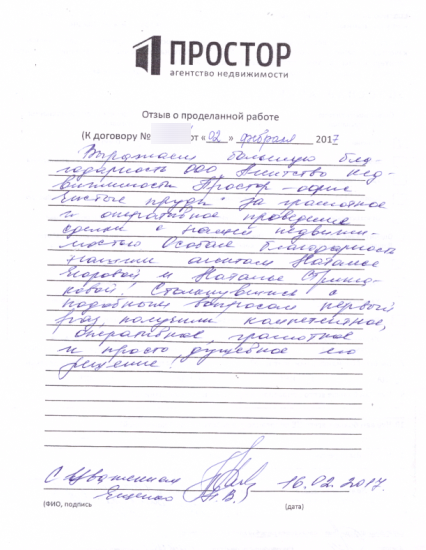 ПРОСТОР
агентство недвижимости
Отзыв о проделанной работе
(К договору № от « 02 » февраля 2017
Выражаем большую бла-
годарность ООО Агентство нед-
вижимости Простор - офис
Чистые пруды" За грамотное
и оперативное проведение
сделки с нашей недвижи-
мостью Особая благодарность
нашим агентам Наталье
Егоровой и Наталье
ковой! Столкнувшись с
подобным вопросам первый
раз, получили компетентное,
оперативное, грамотное
и просто душевное его
решение!
С Уважением
Ещенко В.) 16.02.2017.
(ФИО, подпись (дата)